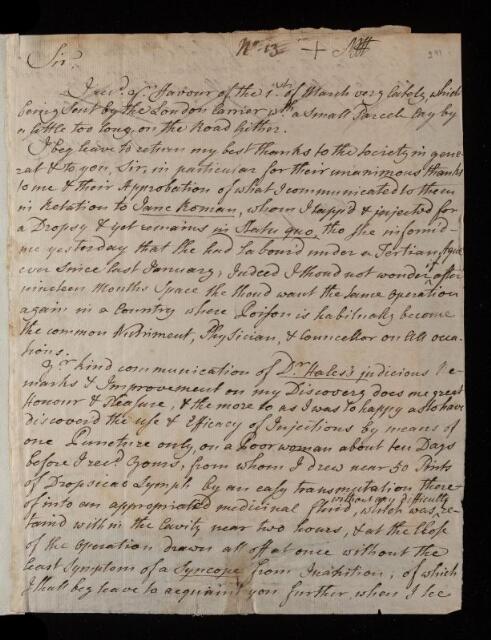 No. 13
291
Sir
I recd. yr. Favour of the 1st. of March very lately, which
being sent by the London Carrier wth. a small Parcel lay by
a little too long on the Road hither.
I beg leave to return my best thanks to the Society in gene
ral & to you, Sir, in particular for their unanimous thanks
to me & their Approbation of what I communicated to them
in Relation to Jane Roman, whom I tapp'd & injected for
a Dropsy & yet remains in statu quo, tho she inform'd
me yesterday that she had labour'd under a Tertian Ague
ever since last January, Indeed I shoud not wonder if after
nineteen Months space she shoud want the same Operation
again in a Country where Poison is habitually become
the common Nutriment, Physician, & Councellor on all occa
sions.
Yr. kind communication of Dr. Hales's judicious Re
marks & Improvement on my Discovery does me great
Honour & Pleasure, & the more so as I was so happy as to have
discoverd the use & Efficacy of Injections by means of
one Puncture only, on a Poor woman about ten Days
before I recd. Yours, from whom I drew near 50 Pints
of Dropsical Lymph by an easy transmutation there
of into an appropriated medicinal fluid, which was re
without any difficulty
taind within the Cavity near two hours, & at the Close
of the Operation drawn all off at once without the
least Symptom of a Syncope from Inanition; of which
I shall beg leave to acquaint you further, when I see